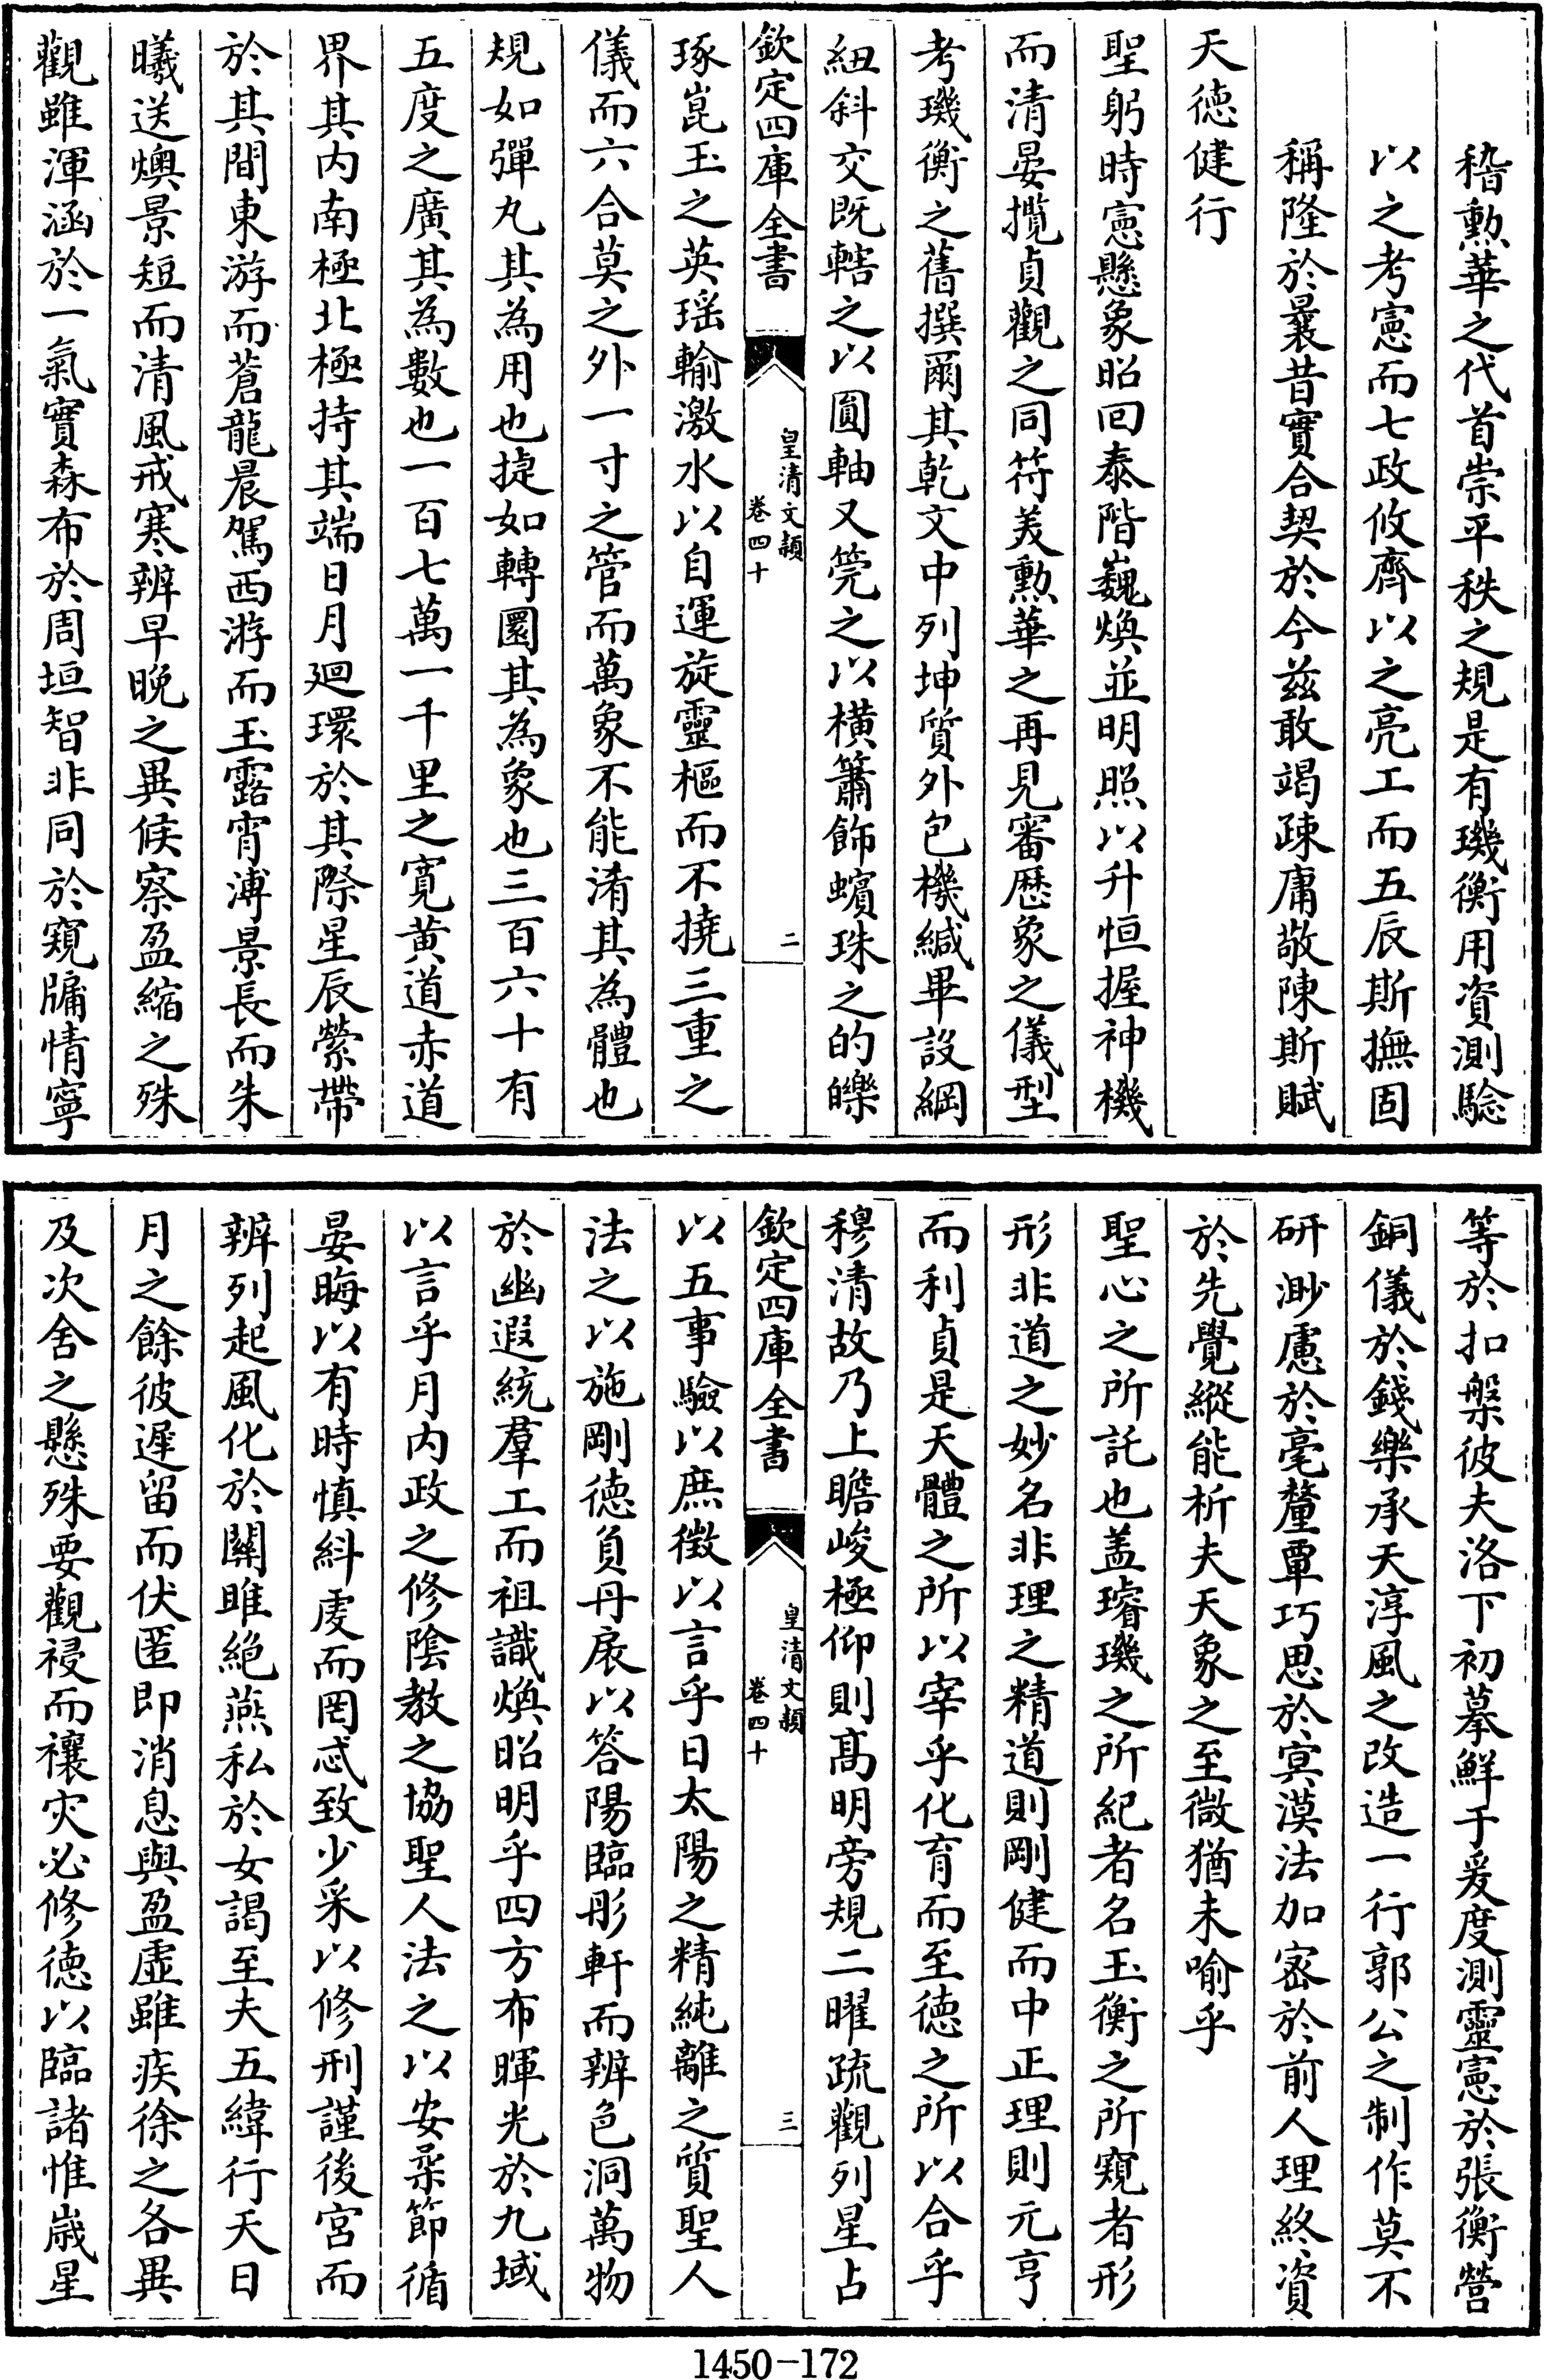 稽勲華之代首崇平秩之規是有璣衡用資測驗
以之考憲而七政攸齊以之亮工而五辰斯撫固
稱隆於曩昔實合契於今兹敢竭疎庸敬陳斯賦
天徳健行
聖躬時憲懸象昭回泰階巍煥並明照以升恒握神機
而清晏攬貞觀之同符羙勲華之再見審歴象之儀型
考璣衡之舊撰爾其乾文中列坤質外包機緘畢設綱
紐斜交既轄之以圓軸又筦之以横簫飾蠙珠之的皪
欽定四庫全書
皇清文頴
卷四十
二
琢崑玉之英瑶輸激水以自運旋靈樞而不撓三重之
儀而六合莫之外一寸之管而萬象不能淆其為體也
規如彈丸其為用也捷如轉圜其為象也三百六十有
五度之廣其為數也一百七萬一千里之寛黄道赤道
界其内南極北極持其端日月廻環於其際星辰縈帶
於其間東游而蒼龍晨駕西游而玉露宵溥景長而朱
曦送燠景短而清風戒寒辨早晩之異候察盈縮之殊
觀雖渾涵於一氣實森布於周垣智非同於窺牖情寧
等於扣槃彼夫洛下初摹鮮于爰度測靈憲於張衡營
銅儀於錢樂承天淳風之改造一行郭公之制作莫不
研渺慮於毫釐覃巧思於㝠漠法加宻於前人理終資
於先覺縱能析夫天象之至微猶未喻乎
聖心之所託也盖璿璣之所紀者名玉衡之所窺者形
形非道之妙名非理之精道則剛健而中正理則元亨
而利貞是天體之所以宰乎化育而至徳之所以合乎
穆清故乃上瞻峻極仰則髙明旁規二曜疏觀列星占
欽定四庫全書
皇清文頴
卷四十
三
以五事驗以庶徴以言乎日太陽之精純離之質聖人
法之以施剛徳負丹扆以答陽臨彤軒而辨色洞萬物
於幽遐統羣工而袒識煥昭明乎四方布暉光於九域
以言乎月内政之修陰教之協聖人法之以安柔節循
晏晦以有時慎糾䖍而罔忒致少采以修刑謹後宫而
辨列起風化於關雎絶燕私於女謁至夫五緯行天日
月之餘彼遲留而伏匿即消息與盈虚雖疾徐之各異
及次舍之懸殊要觀祲而禳灾必修徳以臨諸惟嵗星
1450-172